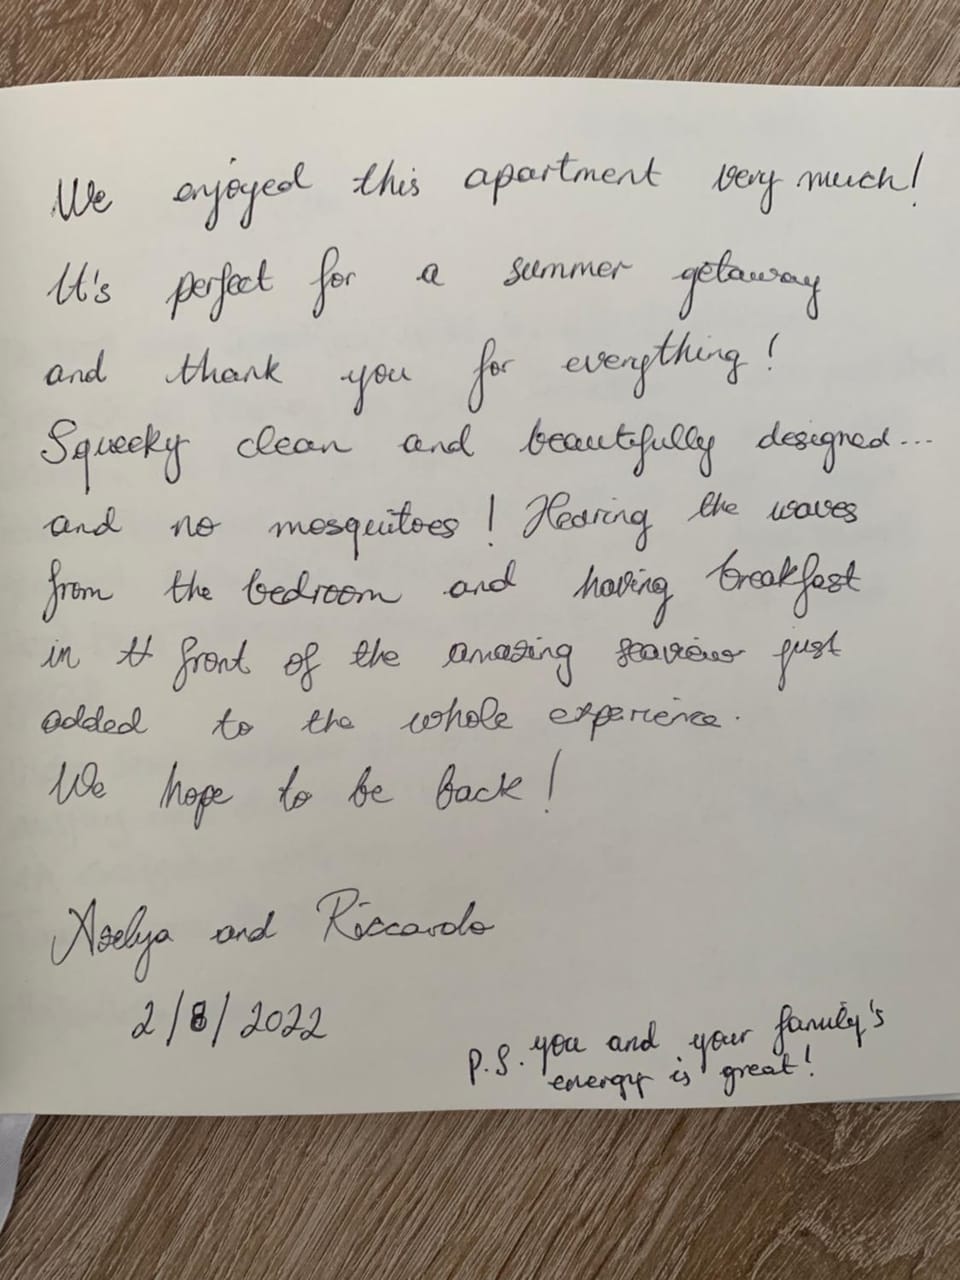 We enjoyed this apartment very much!
It's perfect for a summer getaway
and thank you for everything!
Squeeky clean and beautifully designed...
and no mosquitoes! Hearing the waves
from the bedroom and having breakfast
in tt front of the amazing seaview just
added to the whole experience.
We hope to be back!
Aselya and Riccardo
2/8/2022
P.S. you and your family's
energy is great!